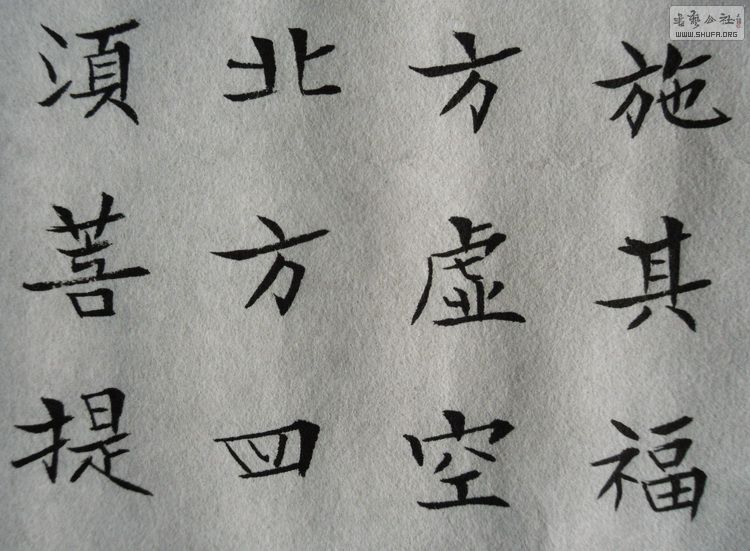 施其福
方虚空
北方四
湏菩提
书艺公社
WWW.SHUFA.ORG